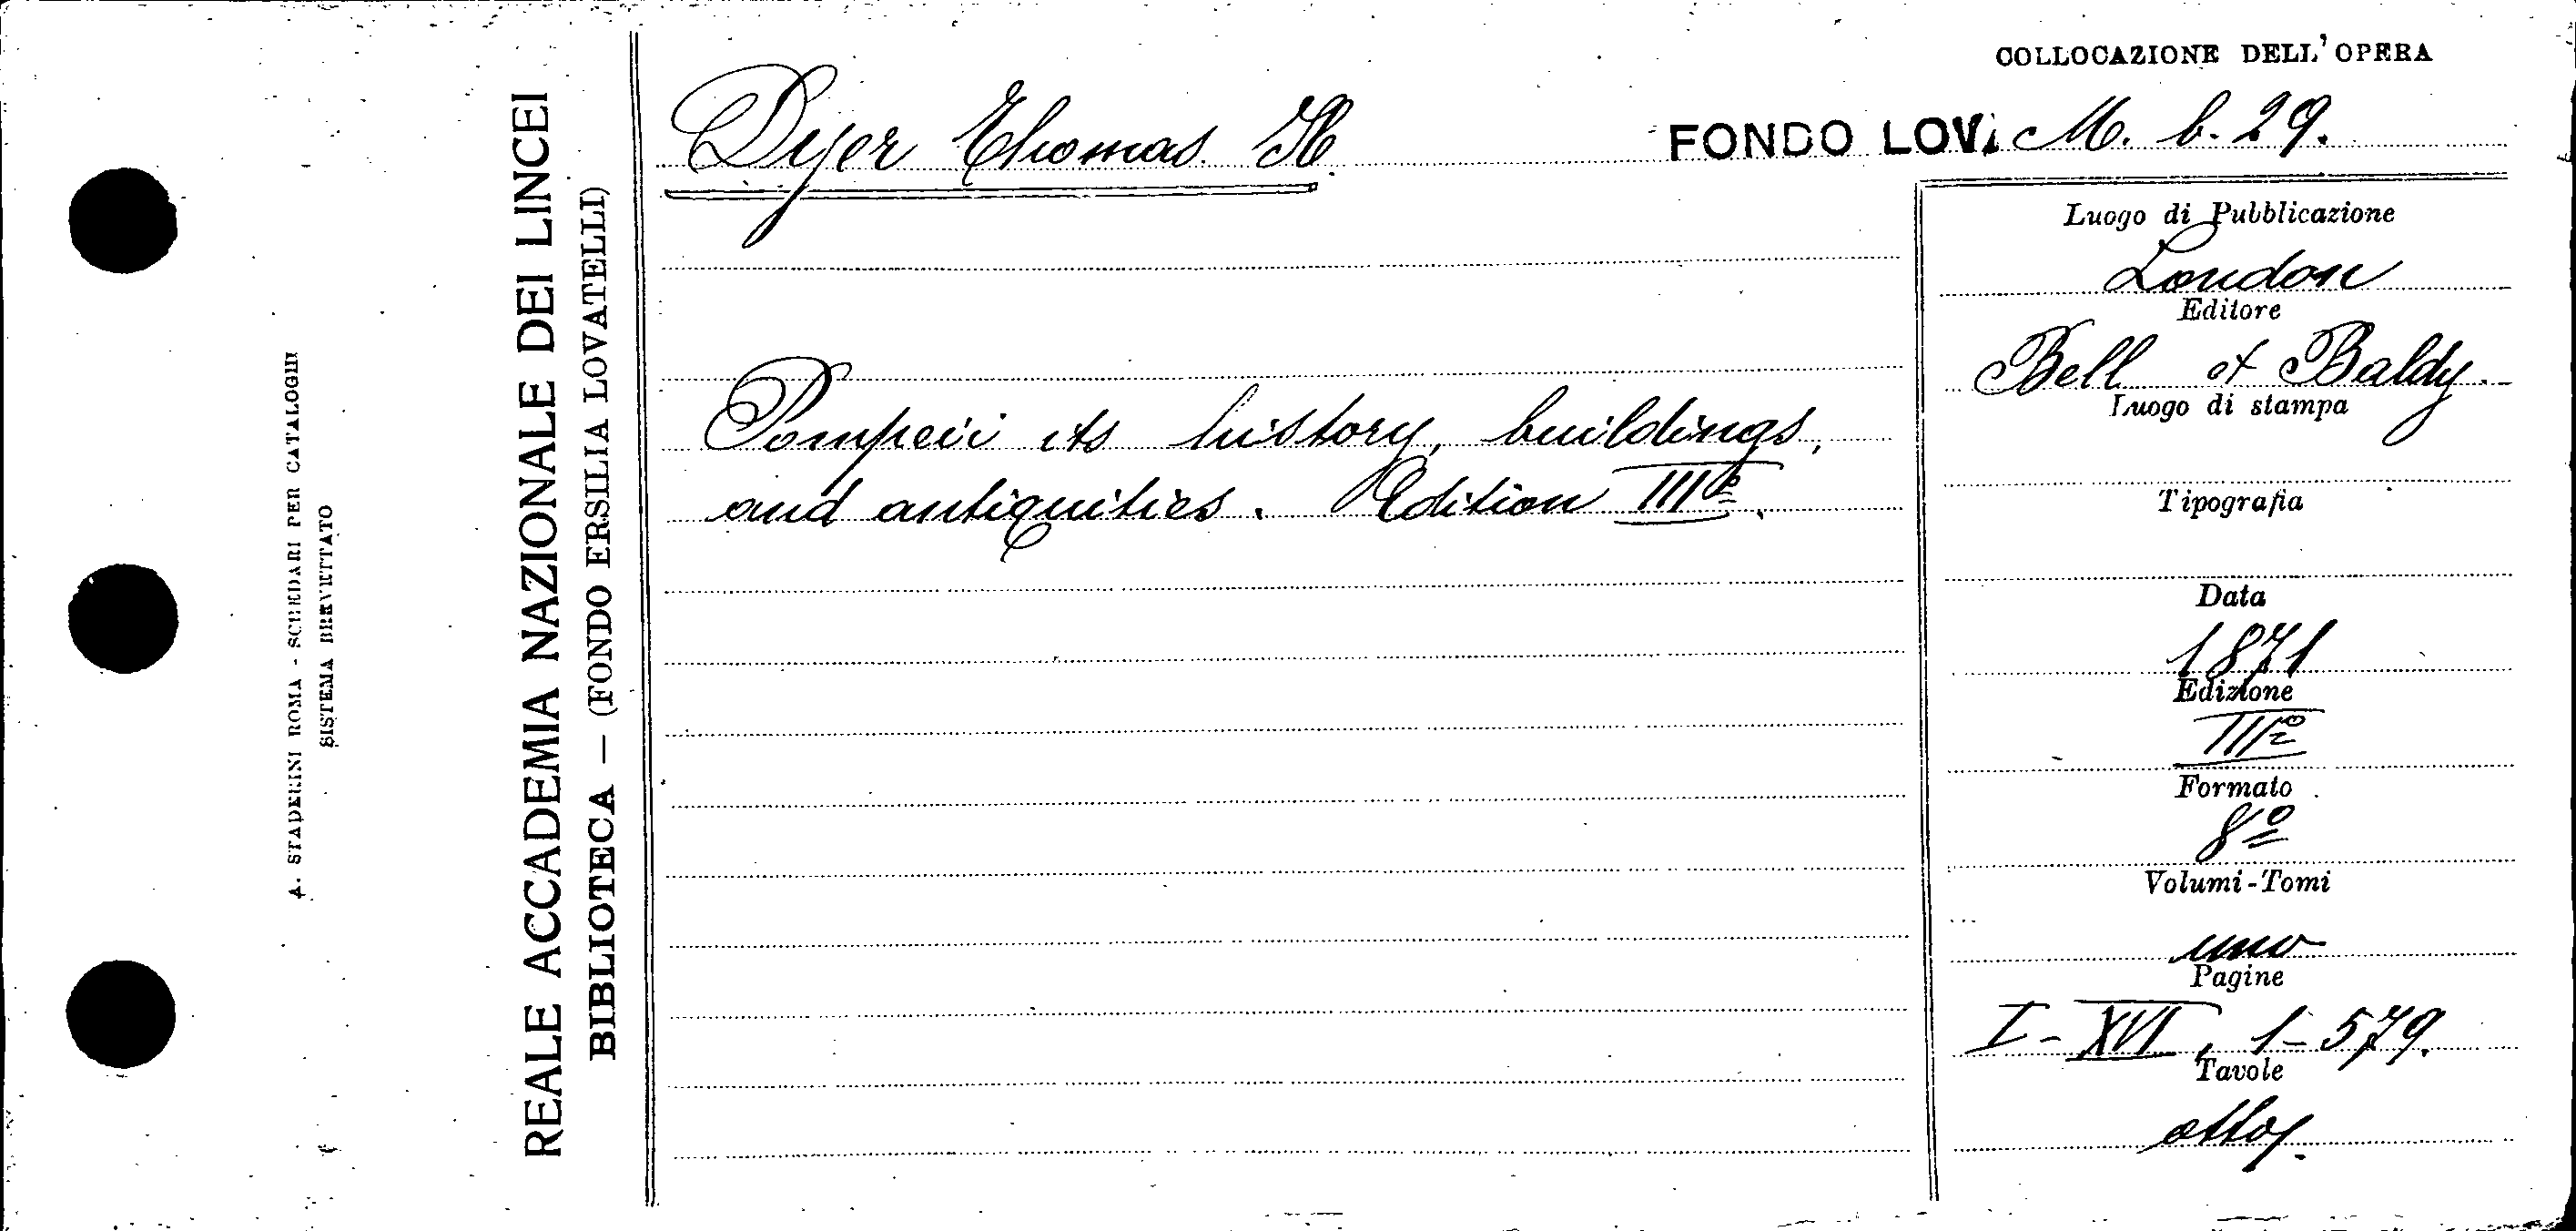 COLLOCAZIONE DELL'OPERA
Dyer Thomas H.
FONDO LOV. M. b. 29.
Luogo di Pubblicazione
London
Editore
Bell et Baldy.
Luogo di stampa
Pompeii its history, buildings,
and antiquities. Edition IIIe.
Tipografia
Data
1871
Edizione
IIIº
Formato
8º
Volumi-Tomi
uno
Pagine
I-XVI, 1-579.
Tavole
otto.
REALE ACCADEMIA NAZIONALE DEI LINCEI
BIBLIOTECA — (FONDO ERSILIA LOVATELLI)
A. STADERINI ROMA - SCHEDARI PER CATALOGHI
SISTEMA BREVETTATO